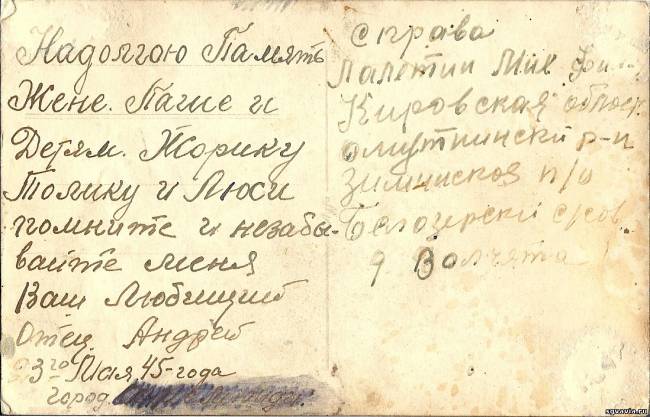 Надолгою Память
Жене. Паше и
Детям. Жорику
Толику и Люси
помните и незабы-
вайте меня
Ваш Любищий
Отец Андрей
23го Мая, 45-года
город.
справа
Лалетин Мих Фил
Кировская област.
Омутнински р-н
Зимниской п/о
Белозерски с/сов
д Волчата
sgvavia.ru